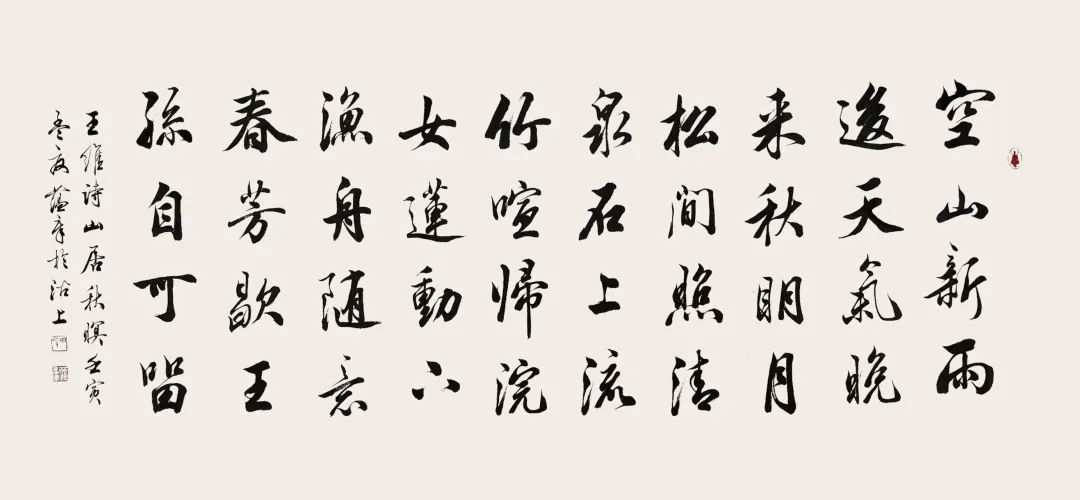 空山新雨
後天氣晚
来秋明月
松間照清
泉石上流
竹喧歸浣
女蓮動下
漁舟随意
春芳歇王
孫自可留
王維詩山居秋暝壬寅
冬於沽上